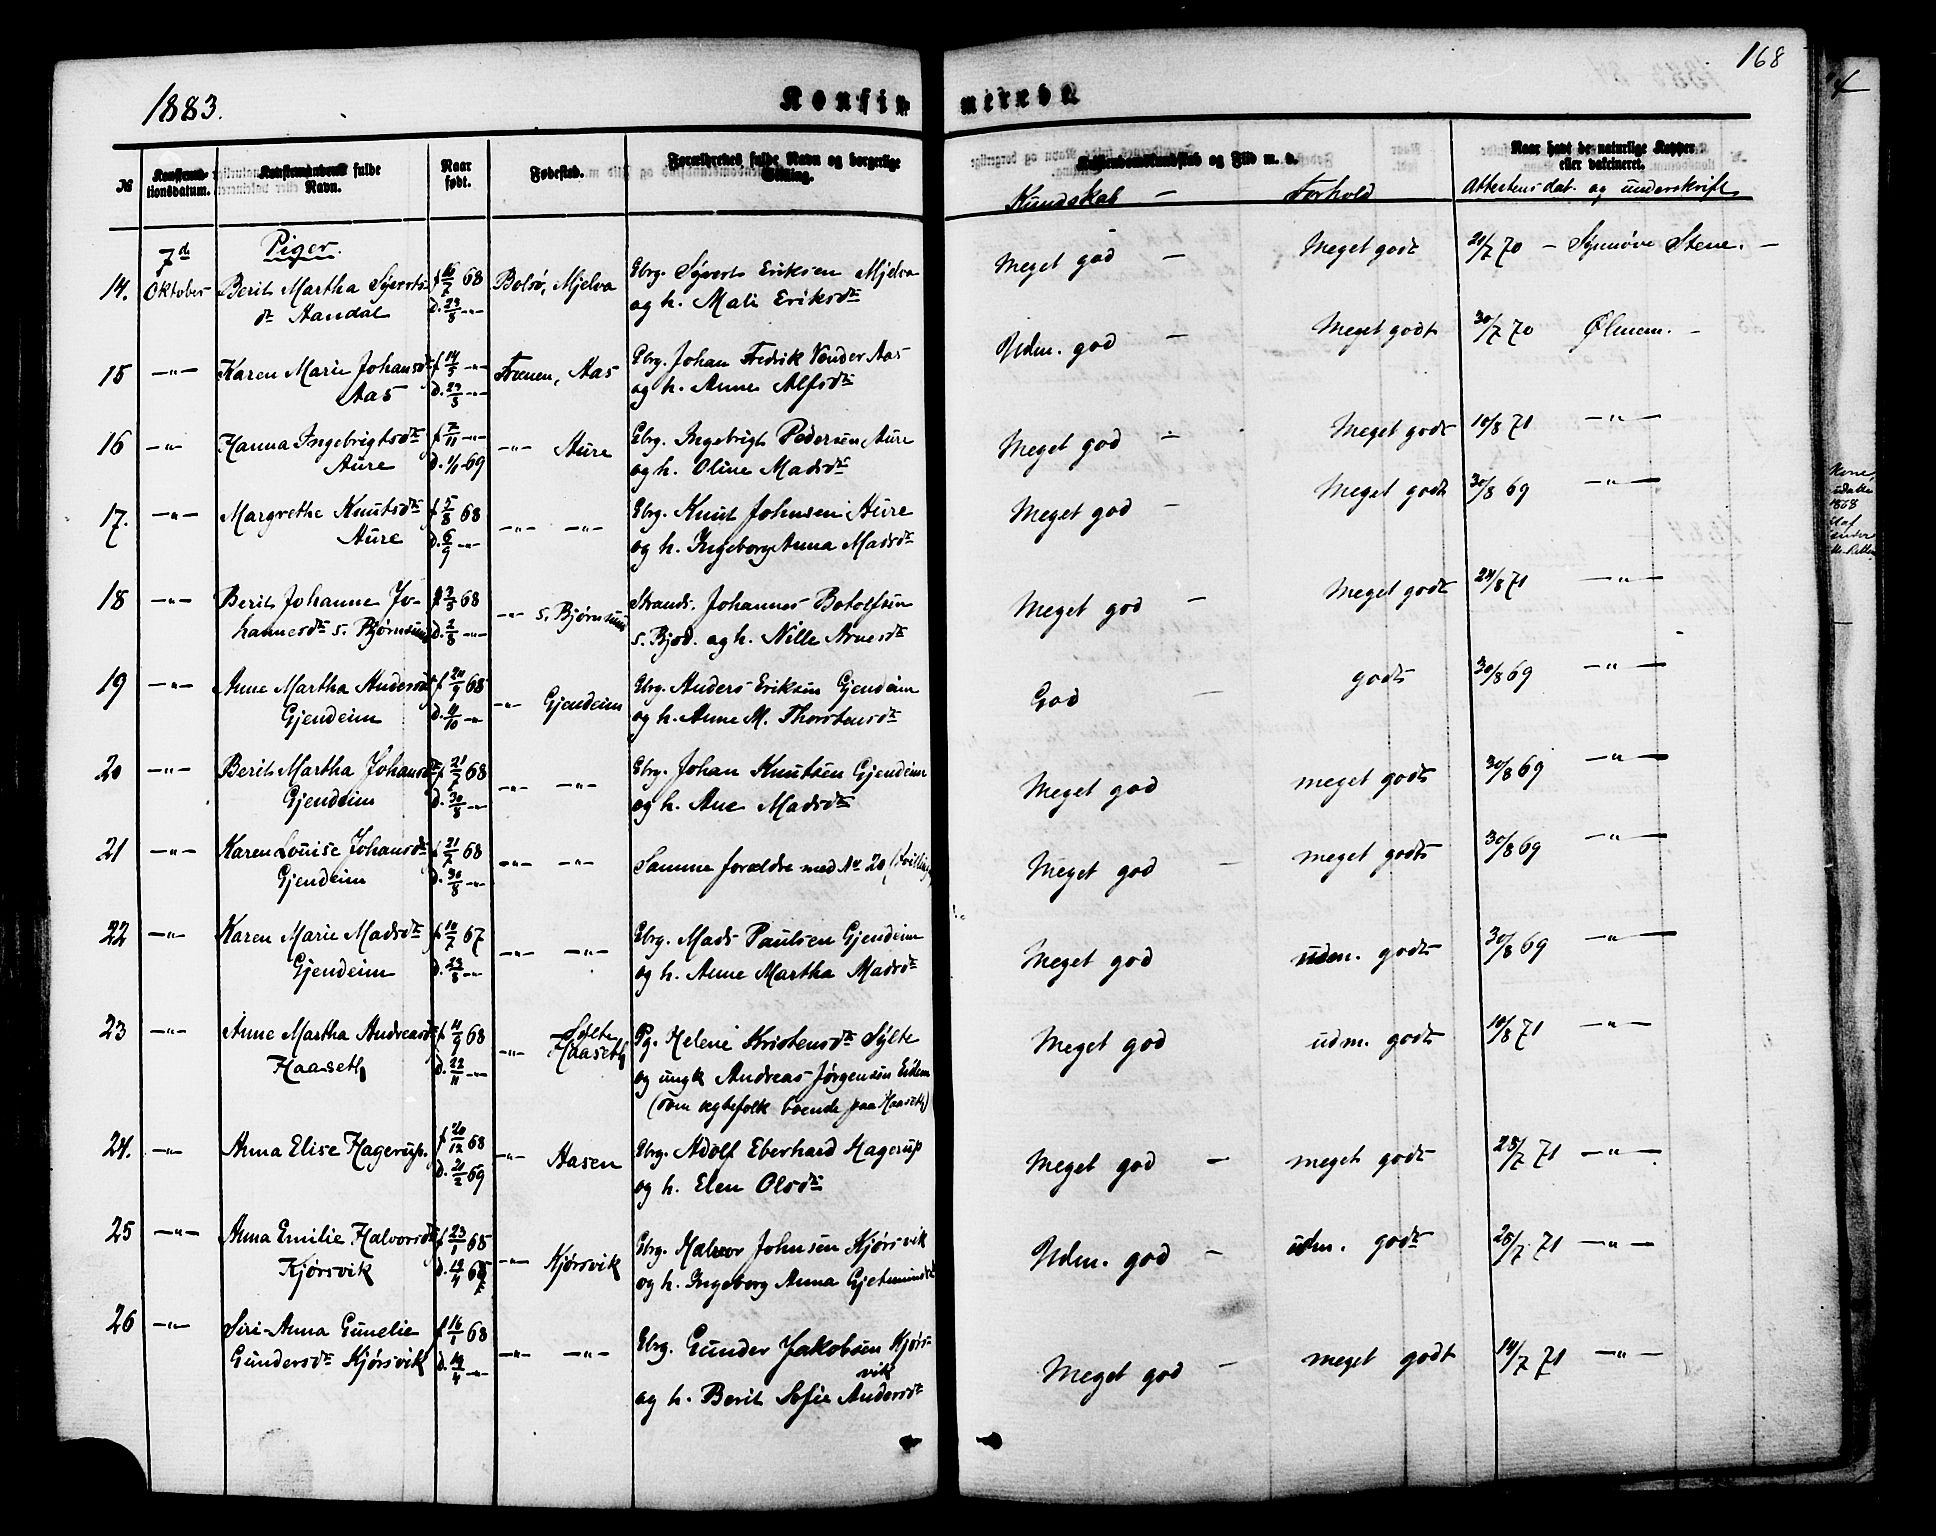 1883.
Konfirmerede
168
№
Konfirmationsdatum.
Konfirmandens fulde Navn.
Naar født.
Fødested.
Forældrenes fulde Navn og borgerlige Stilling.
Kristendomskundskab og Flid m. v.
Naar havt de naturlige Kopper, eller vakcineret.
Kundskab —
Forhold
Attestens dat. og underskrift
7d Piger.
14. Oktober Berit Martha Syverts- f 16/7 68 Bolsø, Mjelva Gbrg. Syvert Eriksen Mjelva Meget god — Meget godt 20/7 70 — Synnøve Stene. —
dtr Aandal d. 23/8 -"- og h. Mali Eriksdtr
15 -"- Karen Marie Johansdtr f 14/3 -"- Frænen, Aas Gbrg. Johan Fredrik Vonder Aas Udm. god — Meget godt 30/7 70 Ølmem. —
Aas d. 29/3 -"- og h. Anne Alfsdtr
16 -"- Hanna Ingebrigtsdtr f 7/11 -"- -"- Aure Gbrg. Ingebrigt Pedersen Aure Meget god — Meget godt 10/8 71 -"-
Aure d. 1/1 69 og h. Oline Madsdtr
17. -"- Margrethe Knutsdtr f 5/8 68 -"- -"- Gbrg. Knut Johnsen Aure Meget god — Meget godt 30/8 69 -"-
Aure d. 6/9 -"- og h. Ingeborg Anna Madsdtr
18 -"- Berit Johanne Jo- f 2/5 68 -"- s. Bjørnsund Strands. Johannes Botolfsen Meget god — Meget godt 24/8 71 -"-
hannesdtr s. Bjørnsund d. 2/8 -"- s. Bjød. og h. Nille Arnesdtr
19 -"- Anne Martha Andersdtr f 20/9 68 -"- Gjendeim Gbrg. Anders Eriksen Gjendeim God — godt 30/8 69 -"-
Gjendeim d. 4/10 -"- og h. Anne M. Thorstensdtr
20 -"- Berit Martha Johansdtr f 21/7 68 -"- -"- Gbrg. Johan Knutsen Gjendeim Meget god meget godt 30/8 69 -"-
Gjendeim d. 30/8 -"- og h. Ane Madsdtr
21 -"- Karen Louise Johansdtr f 21/7 68 -"- -"- Samme forældre med Nr 20 (Tvilling) Meget god — meget godt 30/8 69 -"-
Gjendeim d. 30/8 -"-
22 -"- Karen Marie Madsdtr f 10/7 67 -"- -"- Gbrg. Mads Paulsen Gjendeim Meget god udm. godt 30/8 69 -"-
Gjendeim d. 23/8 -"- og h. Anne Martha Madsdtr
23 -"- Anne Martha Andreasdtr f 4/9 68 -"- Sylte Haaseth Pg. Helene Kristensdtr Sylte Meget god udm. godt 10/8 71 -"-
Haaseth d. 22/11 -"- og ungk Andreas Jørgensen Eidem
(som egtefolk boende paa Haaseth)
24. -"- Anna Elise Hagerup. f 20/12 68 -"- Aasen Gbrg. Adolf Eberhard Hagerup Meget god — meget godt 28/7 71 -"-
d. 21/2 69 og h. Elen Olsdtr
25 -"- Anna Emilie Halvorsdtr f 23/1 68 -"- Kjørsvik Gbrg. Halvor Johnsen Kjørsvik Udm. god — udm. godt 28/7 71 -"-
Kjørsvik d. 19/4 68 og h. Ingeborg Anna Gjetmundsdtr
26 -"- Siri Anna Gunelie f 16/1 68 -"- -"- Gbrg. Gunder Jakobsen Kjørs- Meget god — meget godt 14/7 71 -"-
Gundersdtr Kjørsvik d. 19/4 -"- vik
og h. Berit Sofie Andersdtr